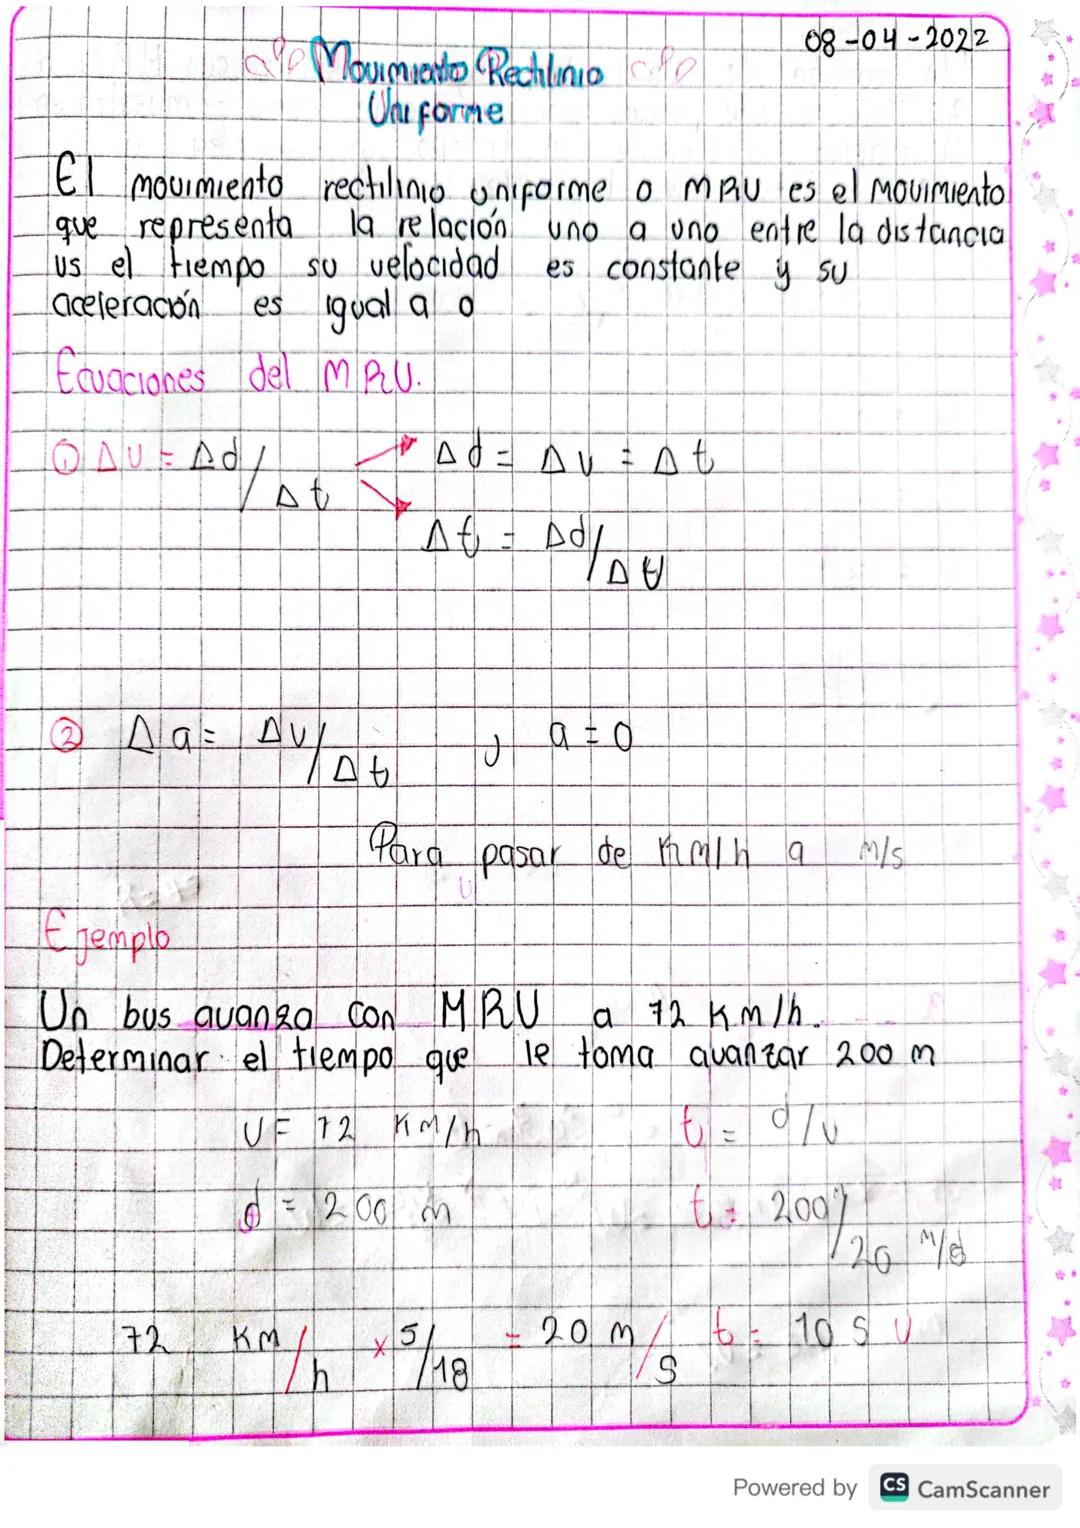 08-04-2022
Movimiento Rectilinio
Uniforme
El movimiento rectilinio uniforme o MRU es el movimiento
que representa la relación uno a uno entre la distancia
vs el tiempo su velocidad es constante y su
aceleración es igual a 0
Ecuaciones del MRU.
① Δv = Δd/Δt
Δd = Δv = Δt
Δt = Δd/Δv
② Δa = Δv/Δt , a = 0
Para pasar de Km/h a m/s
Ejemplo
Un bus avanza con MRU a 72 Km/h.
Determinar el tiempo que le toma avanzar 200 m
v = 72 Km/h t = d/v
d = 200 m t = 200/20 m/s
72 Km/h x 5/18 = 20 m/s t = 10 s
Powered by CS CamScanner